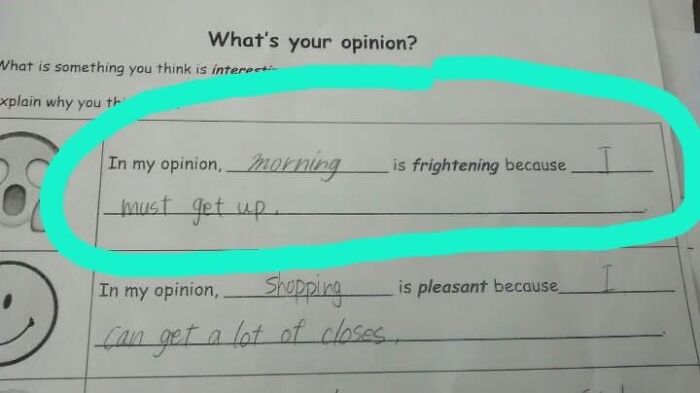 What's your opinion?
What is something you think is
xplain why you
In my opinion, morning is frightening because I
must get up.
In my opinion, Shopping is pleasant because I
can get a lot of closes.